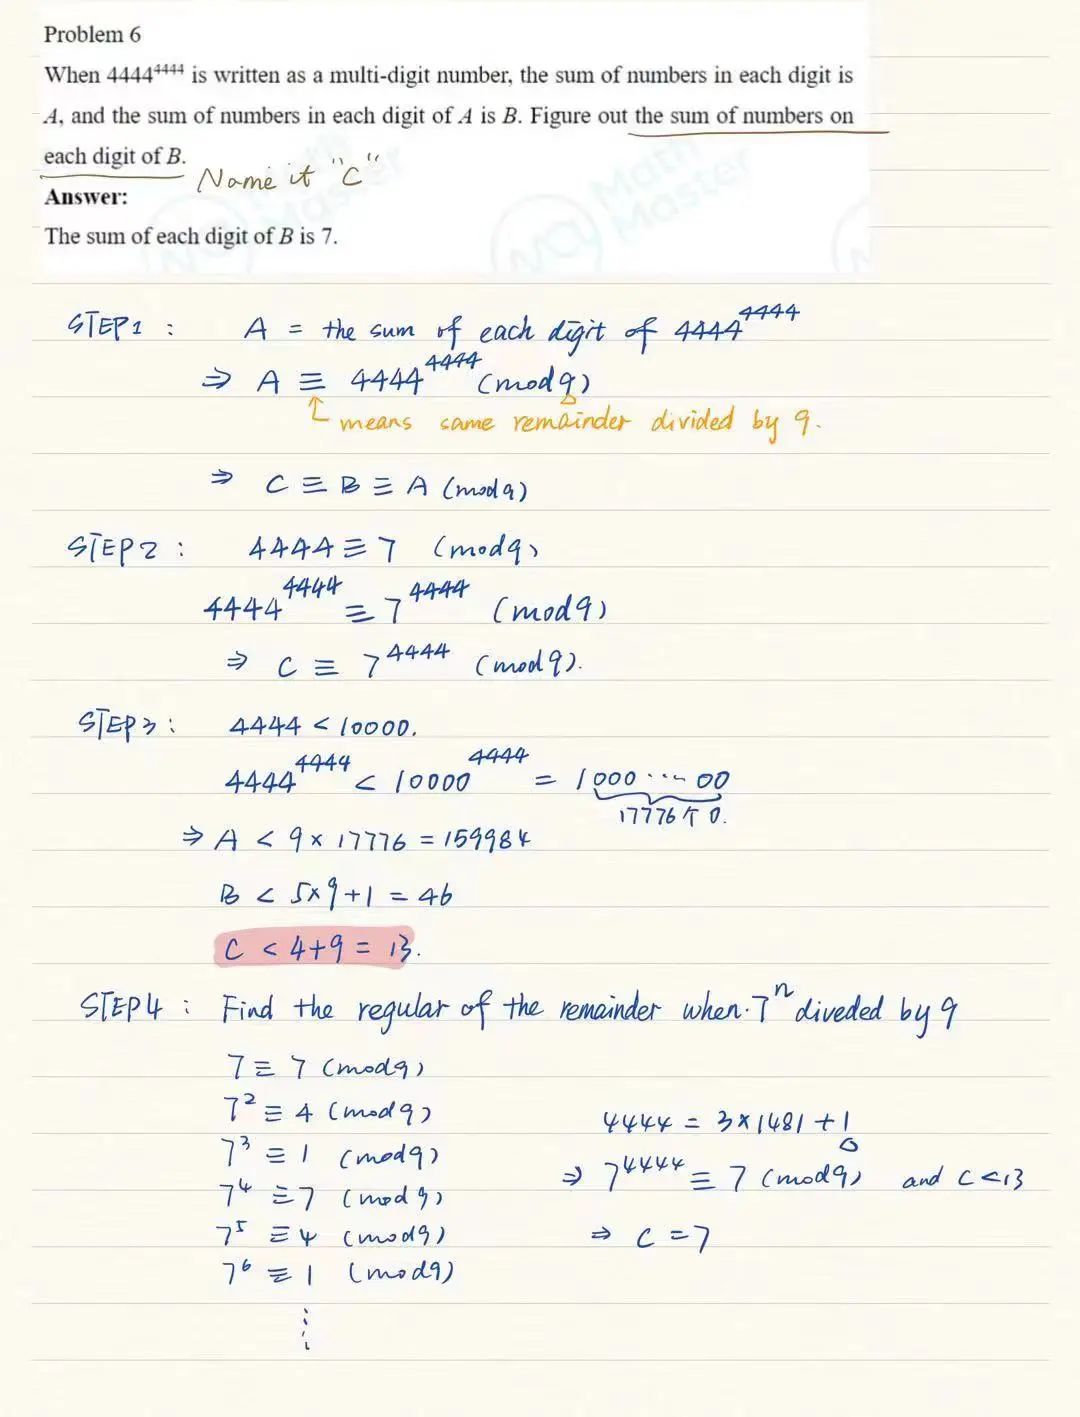 Problem 6
When 4444⁴⁴⁴⁴ is written as a multi-digit number, the sum of numbers in each digit is
A, and the sum of numbers in each digit of A is B. Figure out the sum of numbers on
each digit of B.
Name it "C"
Answer:
The sum of each digit of B is 7.
Math Master
Math Master
STEP1 : A = the sum of each digit of 4444⁴⁴⁴⁴
⇒ A ≡ 4444⁴⁴⁴⁴ (mod 9)
↑ means same remainder divided by 9.
⇒ C ≡ B ≡ A (mod 9)
STEP2 : 4444 ≡ 7 (mod 9)
4444⁴⁴⁴⁴ ≡ 7⁴⁴⁴⁴ (mod 9)
⇒ C ≡ 7⁴⁴⁴⁴ (mod 9).
STEP3 : 4444 < 10000.
4444⁴⁴⁴⁴ < 10000⁴⁴⁴⁴ = 1000···00
17776个0.
⇒ A < 9×17776 = 159984
B < 5×9+1 = 46
C < 4+9 = 13.
STEP4 : Find the regular of the remainder when 7ⁿ diveded by 9
7 ≡ 7 (mod 9)
7² ≡ 4 (mod 9)
4444 = 3×1481 + 1
7³ ≡ 1 (mod 9)
⇒ 7⁴⁴⁴⁴ ≡ 7 (mod 9) and C<13
7⁴ ≡ 7 (mod 9)
7⁵ ≡ 4 (mod 9)
⇒ C = 7
7⁶ ≡ 1 (mod 9)